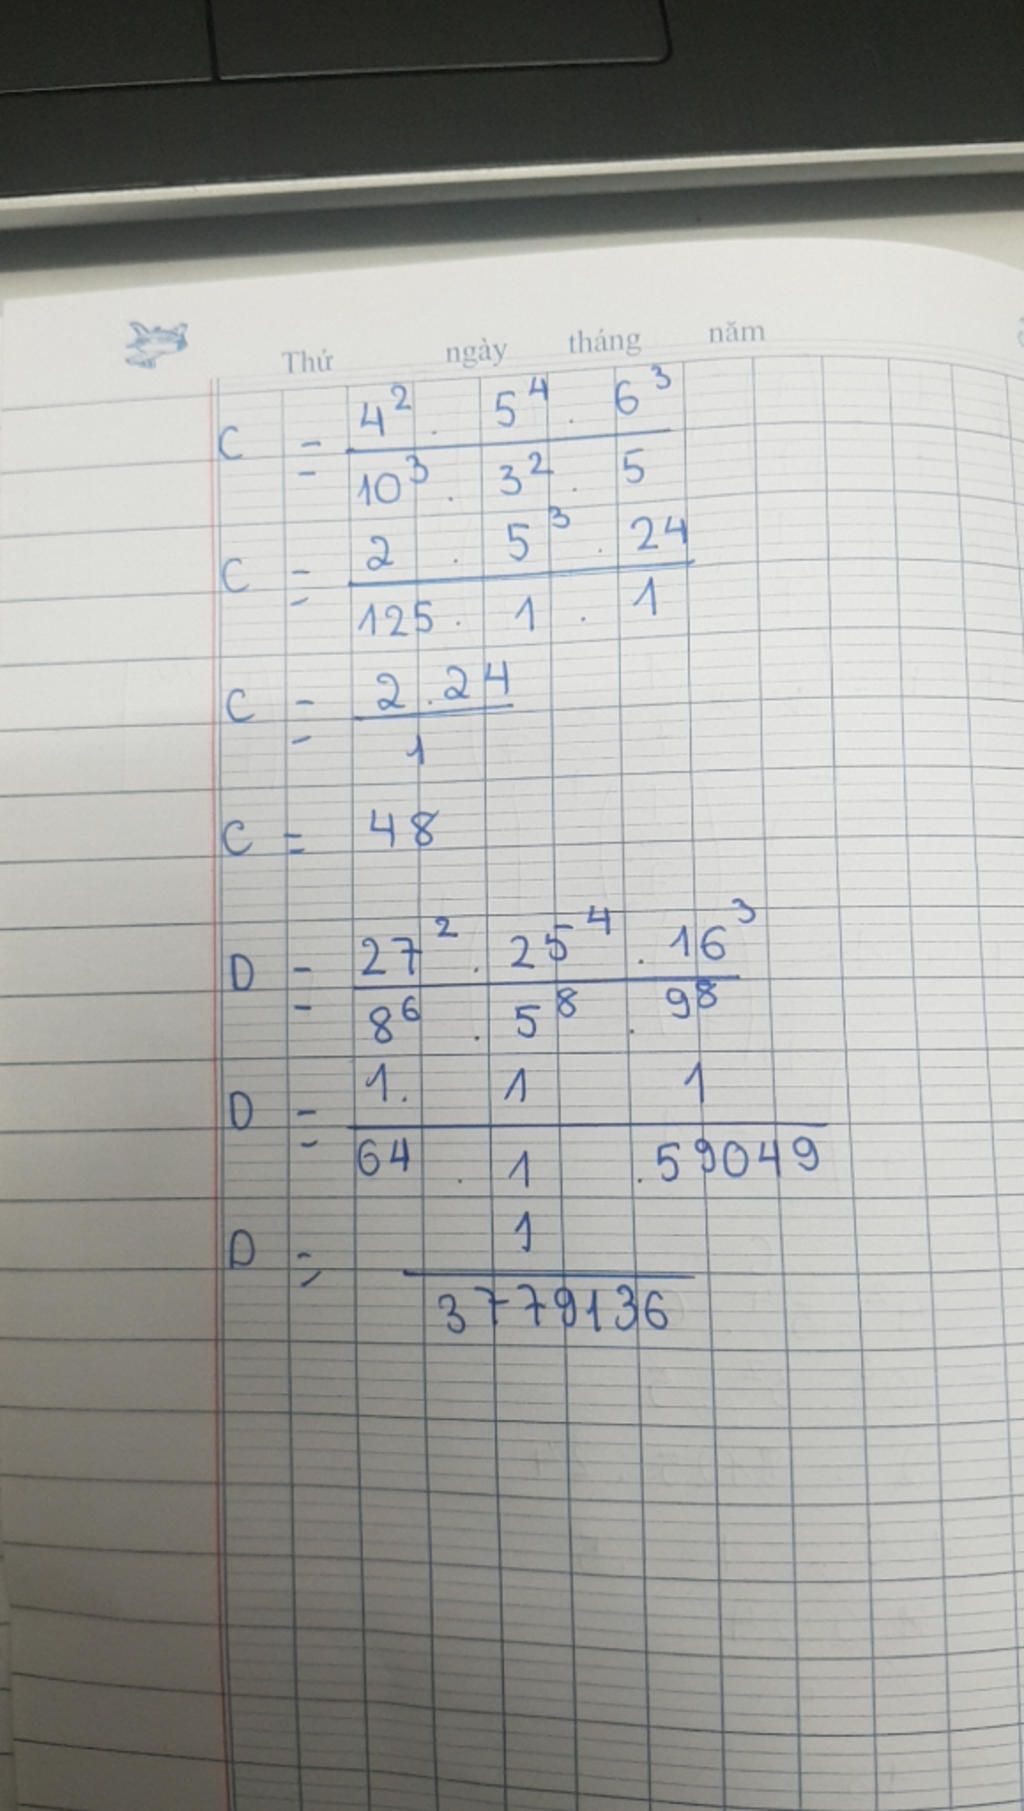 Thứ ngày tháng năm
C = 4² . 5⁴ . 6³
10³ . 3² . 5
C = 2 . 5³ . 24
125 . 1 . 1
C = 2 . 24
1
C = 48
D = 27² . 25⁴ . 16³
8⁶ . 5⁸ . 9⁸
D = 1. 1 1
64 . 1 . 59049
D = 1
3779136